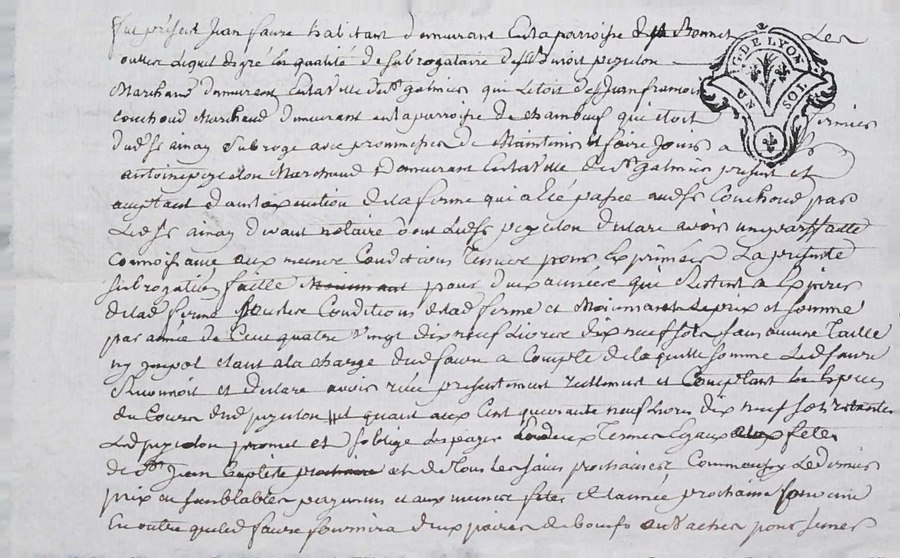 fut présent Jean faure habitant demeurant en la parroisse de st Bonnet Les
oulles lequel de gré en qualité de subrogataire de Sr Benoit peyzelon
Marchand demeurant en la ville de st galmier qui l'etoit de Sr Jean francois
Couchoud Marchand demeurant en la parroisse de chambeuf qui etoit fermier
du dSr ainay subroge avec promesse de Maintenir et faire jouir a Sr
antoine peyzelon Marchand demeurant en la Ville de st galmier present et
aceptant de la ferme qui a eté passée audSr Couchoud par
LedSr ainay devant notaire dont LedSr peyzelon declare avoir une parffaitte
Connoissance aux mesmes Conditions La presente
subrogation faitte pour deux années qui restent a Expirer
de lad ferme Conditions de lad ferme et prix et somme
par année de Cent quatre Vingt dix neuf Livres dix neuf sols sans aucune Taille
ny impot etant a la charge dud faure a Compte de laquelle somme Led faure
reconnoit et declare avoir reçu presentement reellement et Comptant En Especes
du Cours dud peyzelon et quant aux Cent quarante neuf Livres dix neuf sols restantes
Led peyzelon promet et s'oblige les payer En deux Termes Egaux fetes
de st Jean baptiste et de Tous les saints prochaines Commencer Le dernier
prix en semblables payemens et aux mesmes fetes de l'année prochaine
En outre que led faure fournira deux paires de boeufs ou Vaches pour semer
G. DE LYON
UN SOL